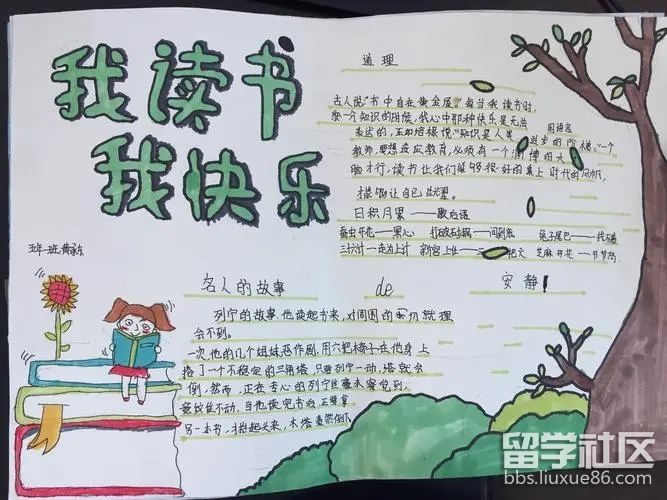 我读书
我快乐
道理
古人说"书中自有黄金屋"每当我读书时,
个知识的时候,我心中那种快乐是无法
用语言
表达的,正如培根说:"知识是人类进步的阶梯,"一个
教师,要想适应教育,必须有一个渊博的大
脑才行,读书让我们能够很好的乘上时代的风帆,
让自己
日积月累——歇后语
蚕虫开花——黑心 打破砂锅——问到底 兔子尾巴——
三十六计—走为上计 新官上任——三把火 芝麻开花—节节高
五年一班
名人的故事
de
安静!
列宁的故事 他读起书来,对周围的就理
会不到。
一次他的几个姐妹恶作剧,用六把椅子在他身上
搭了一个不稳定的三角塔,只要列宁一动,塔就会
倒,然而,正在专心的列宁丝毫未察觉到,
竟纹丝不动,当他读完书后正要拿
另一本书,才抬起头来,木塔轰然倒下
留学社区
bbs.liuxue86.com